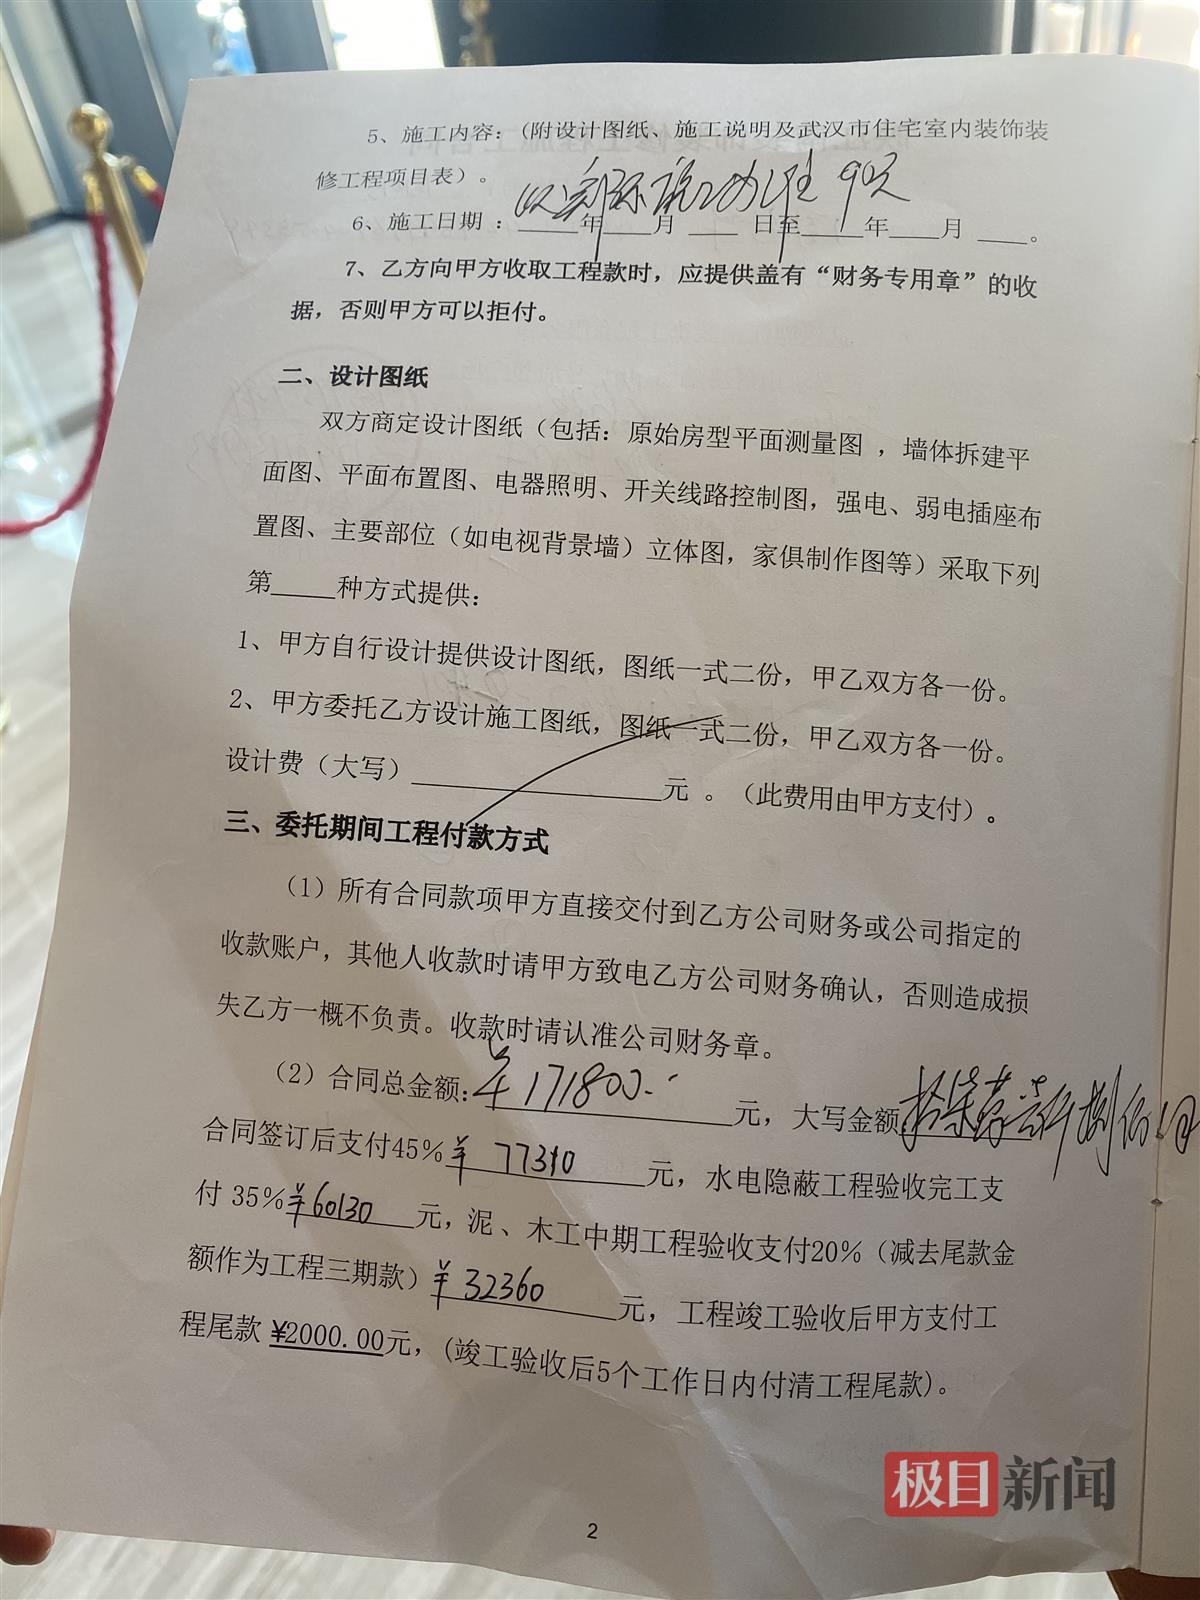 5、施工内容：（附设计图纸、施工说明及武汉市住宅室内装饰装
修工程项目表）。
以实际施工为准 90天
6、施工日期 ：____年____月 ____ 日至____年____月 ____。
7、乙方向甲方收取工程款时，应提供盖有“财务专用章”的收
据，否则甲方可以拒付。
二、设计图纸
双方商定设计图纸（包括：原始房型平面测量图 ，墙体拆建平
面图、平面布置图、电器照明、开关线路控制图，强电、弱电插座布
置图、主要部位（如电视背景墙）立体图，家俱制作图等）采取下列
第_____种方式提供：
1、甲方自行设计提供设计图纸，图纸一式二份，甲乙双方各一份。
2、甲方委托乙方设计施工图纸，图纸一式二份，甲乙双方各一份。
设计费（大写）____________________元 。（此费用由甲方支付）。
三、委托期间工程付款方式
（1）所有合同款项甲方直接交付到乙方公司财务或公司指定的
收款账户，其他人收款时请甲方致电乙方公司财务确认，否则造成损
失乙方一概不负责。收款时请认准公司财务章。
（2）合同总金额：¥171800.-元，大写金额：拾柒万壹仟捌佰
合同签订后支付45%¥ 77310元，水电隐蔽工程验收完工支
付 35%¥60130元，泥、木工中期工程验收支付20%（减去尾款金
额作为工程三期款）¥ 32360元，工程竣工验收后甲方支付工
程尾款 ¥2000.00元，(竣工验收后5个工作日内付清工程尾款)。
极目新闻
2